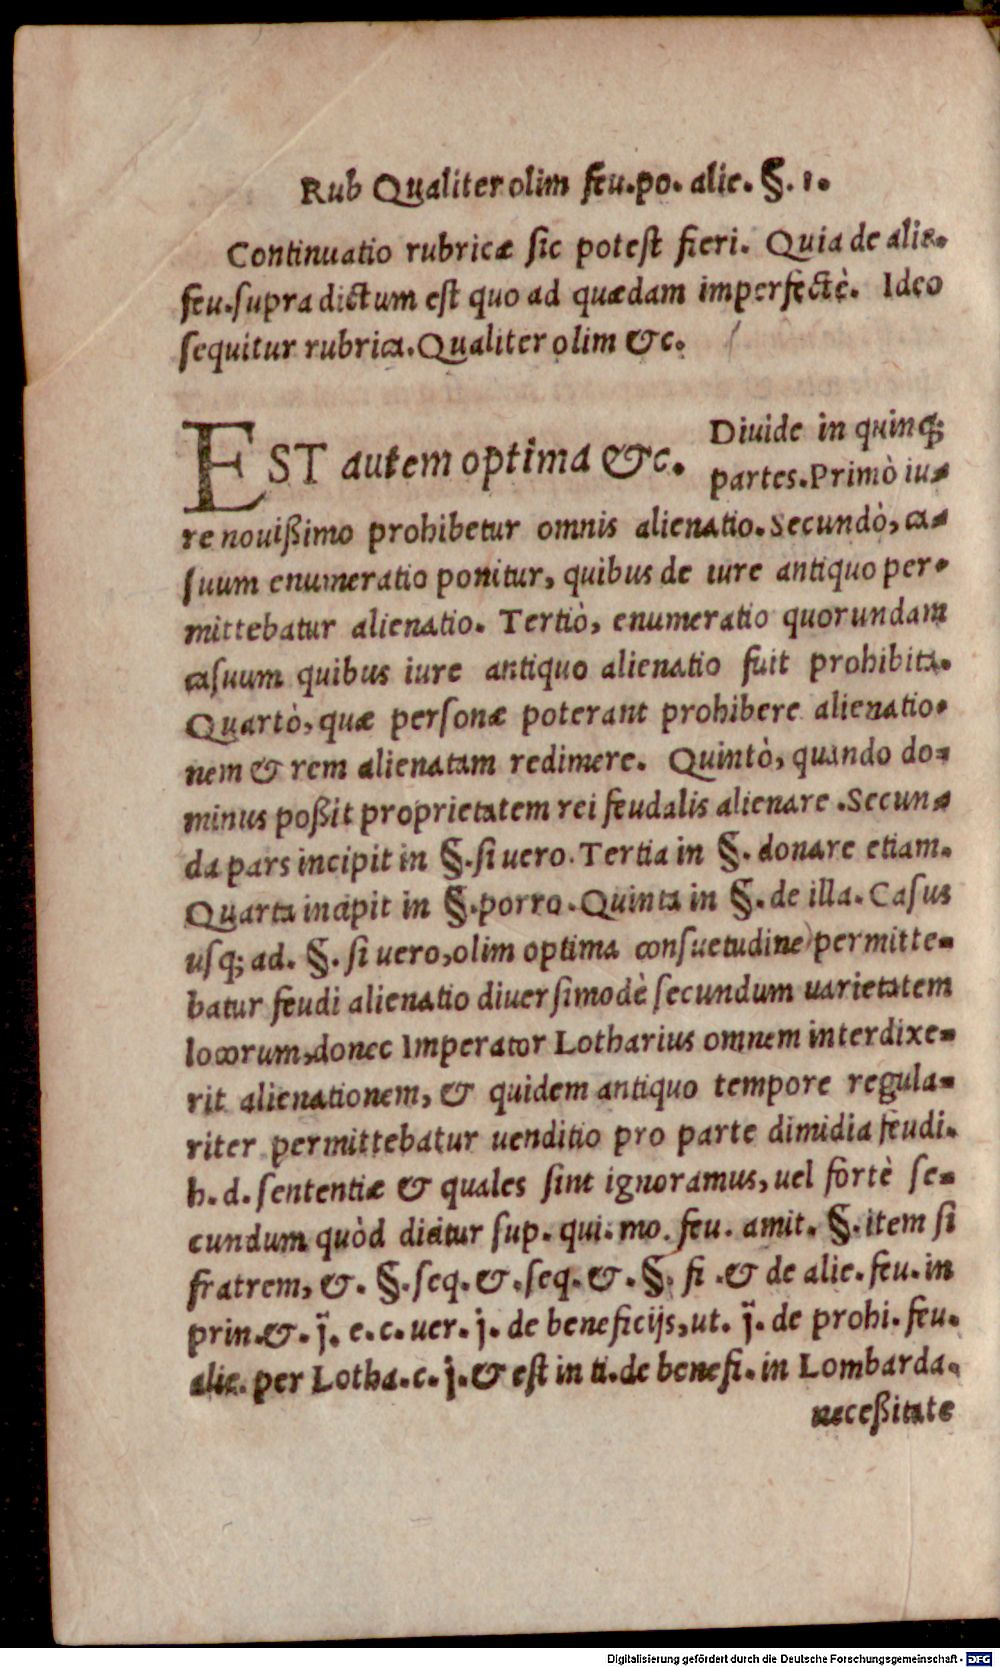 Rub Qualiter olim feu.po. alie. §. 1.
Continuatio rubricæ sic potest fieri. Quia de alie.
feu.supra dictum est quo ad quædam imperfectè. Ideo
sequitur rubrica.Qualiter olim &c.
EST autem optima &c. Diuide in quinq;
partes.Primò iu-
re nouißimo prohibetur omnis alienatio.Secundò, ca-
suum enumeratio ponitur, quibus de iure antiquo per-
mittebatur alienatio. Tertiò, enumeratio quorundam
casuum quibus iure antiquo alienatio fuit prohibita.
Quartò, quæ personæ poterant prohibere alienatio-
nem & rem alienatam redimere. Quintò, quando do-
minus poßit proprietatem rei feudalis alienare .Secun-
da pars incipit in §.si uero.Tertia in §. donare etiam.
Quarta incipit in §.porro.Quinta in §. de illa. Casus
usq; ad. §. si uero,olim optima consuetudine permitte-
batur feudi alienatio diuersimodè secundum uarietatem
locorum,donec Imperator Lotharius omnem interdixe-
rit alienationem, & quidem antiquo tempore regula-
riter permittebatur uenditio pro parte dimidia feudi.
h.d.sententiæ & quales sint ignoramus, uel fortè se-
cundum quòd dicitur sup. qui. mo. feu. amit. §. item si
fratrem, &. §.seq.&.seq.&.§. si .& de alie.feu.in
prin.&. j̈. e.c.uer. j. de beneficijs,ut. j̈. de prohi.feu.
alie.per Lotha.c.j.& est in ti.de benefi.in Lombarda.
neceßitate
Digitalisierung gefördert durch die Deutsche Forschungsgemeinschaft - DFG